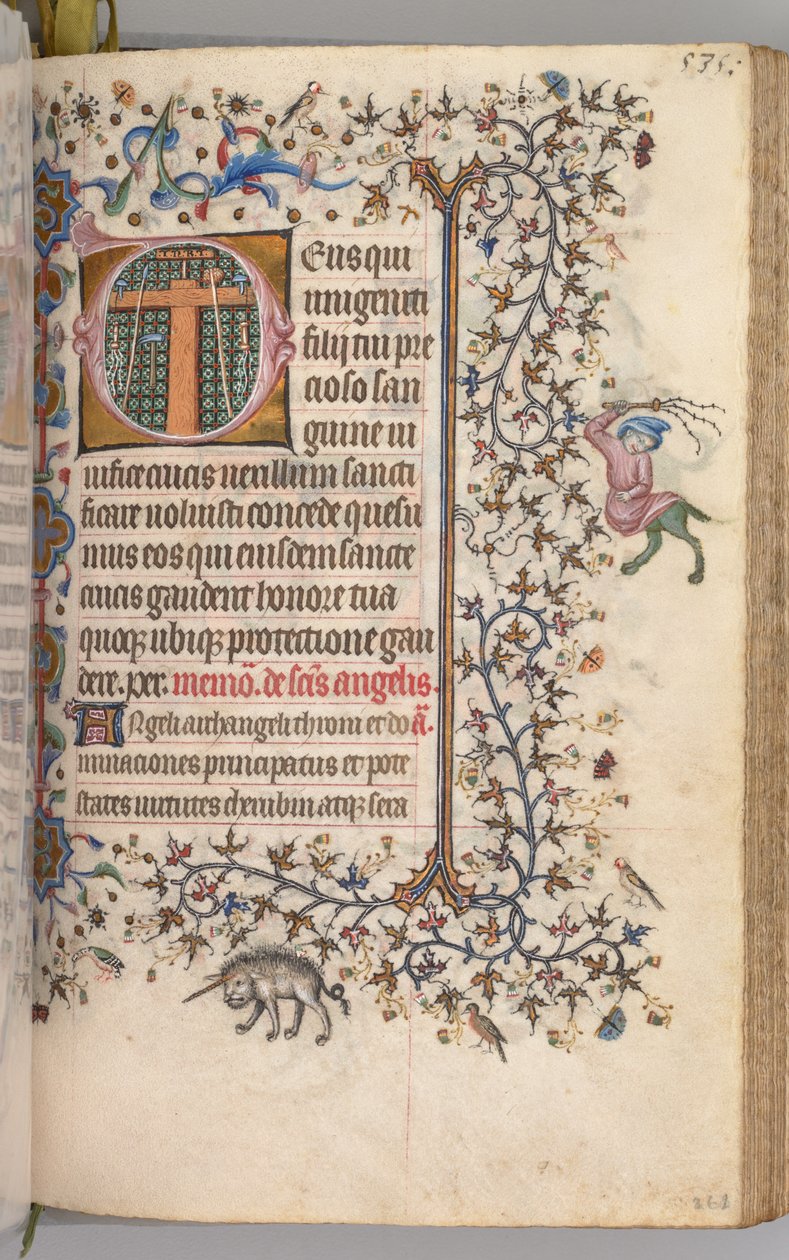 535:
I N R I
Deus qui
unigeniti
filij tui pre
cioso san
guine ui
uifice crucis uexillum sancti
ficare uoluisti concede quesu
mus eos qui eiusdem sancte
crucis gaudent honore tua
quoqꝫ ubiqꝫ protectione gau
dere. per. memō. de scīs angelis.
Angeli archangeli throni et do ā.
minaciones principatus et pote
states uirtutes cherubin atqꝫ sera
261